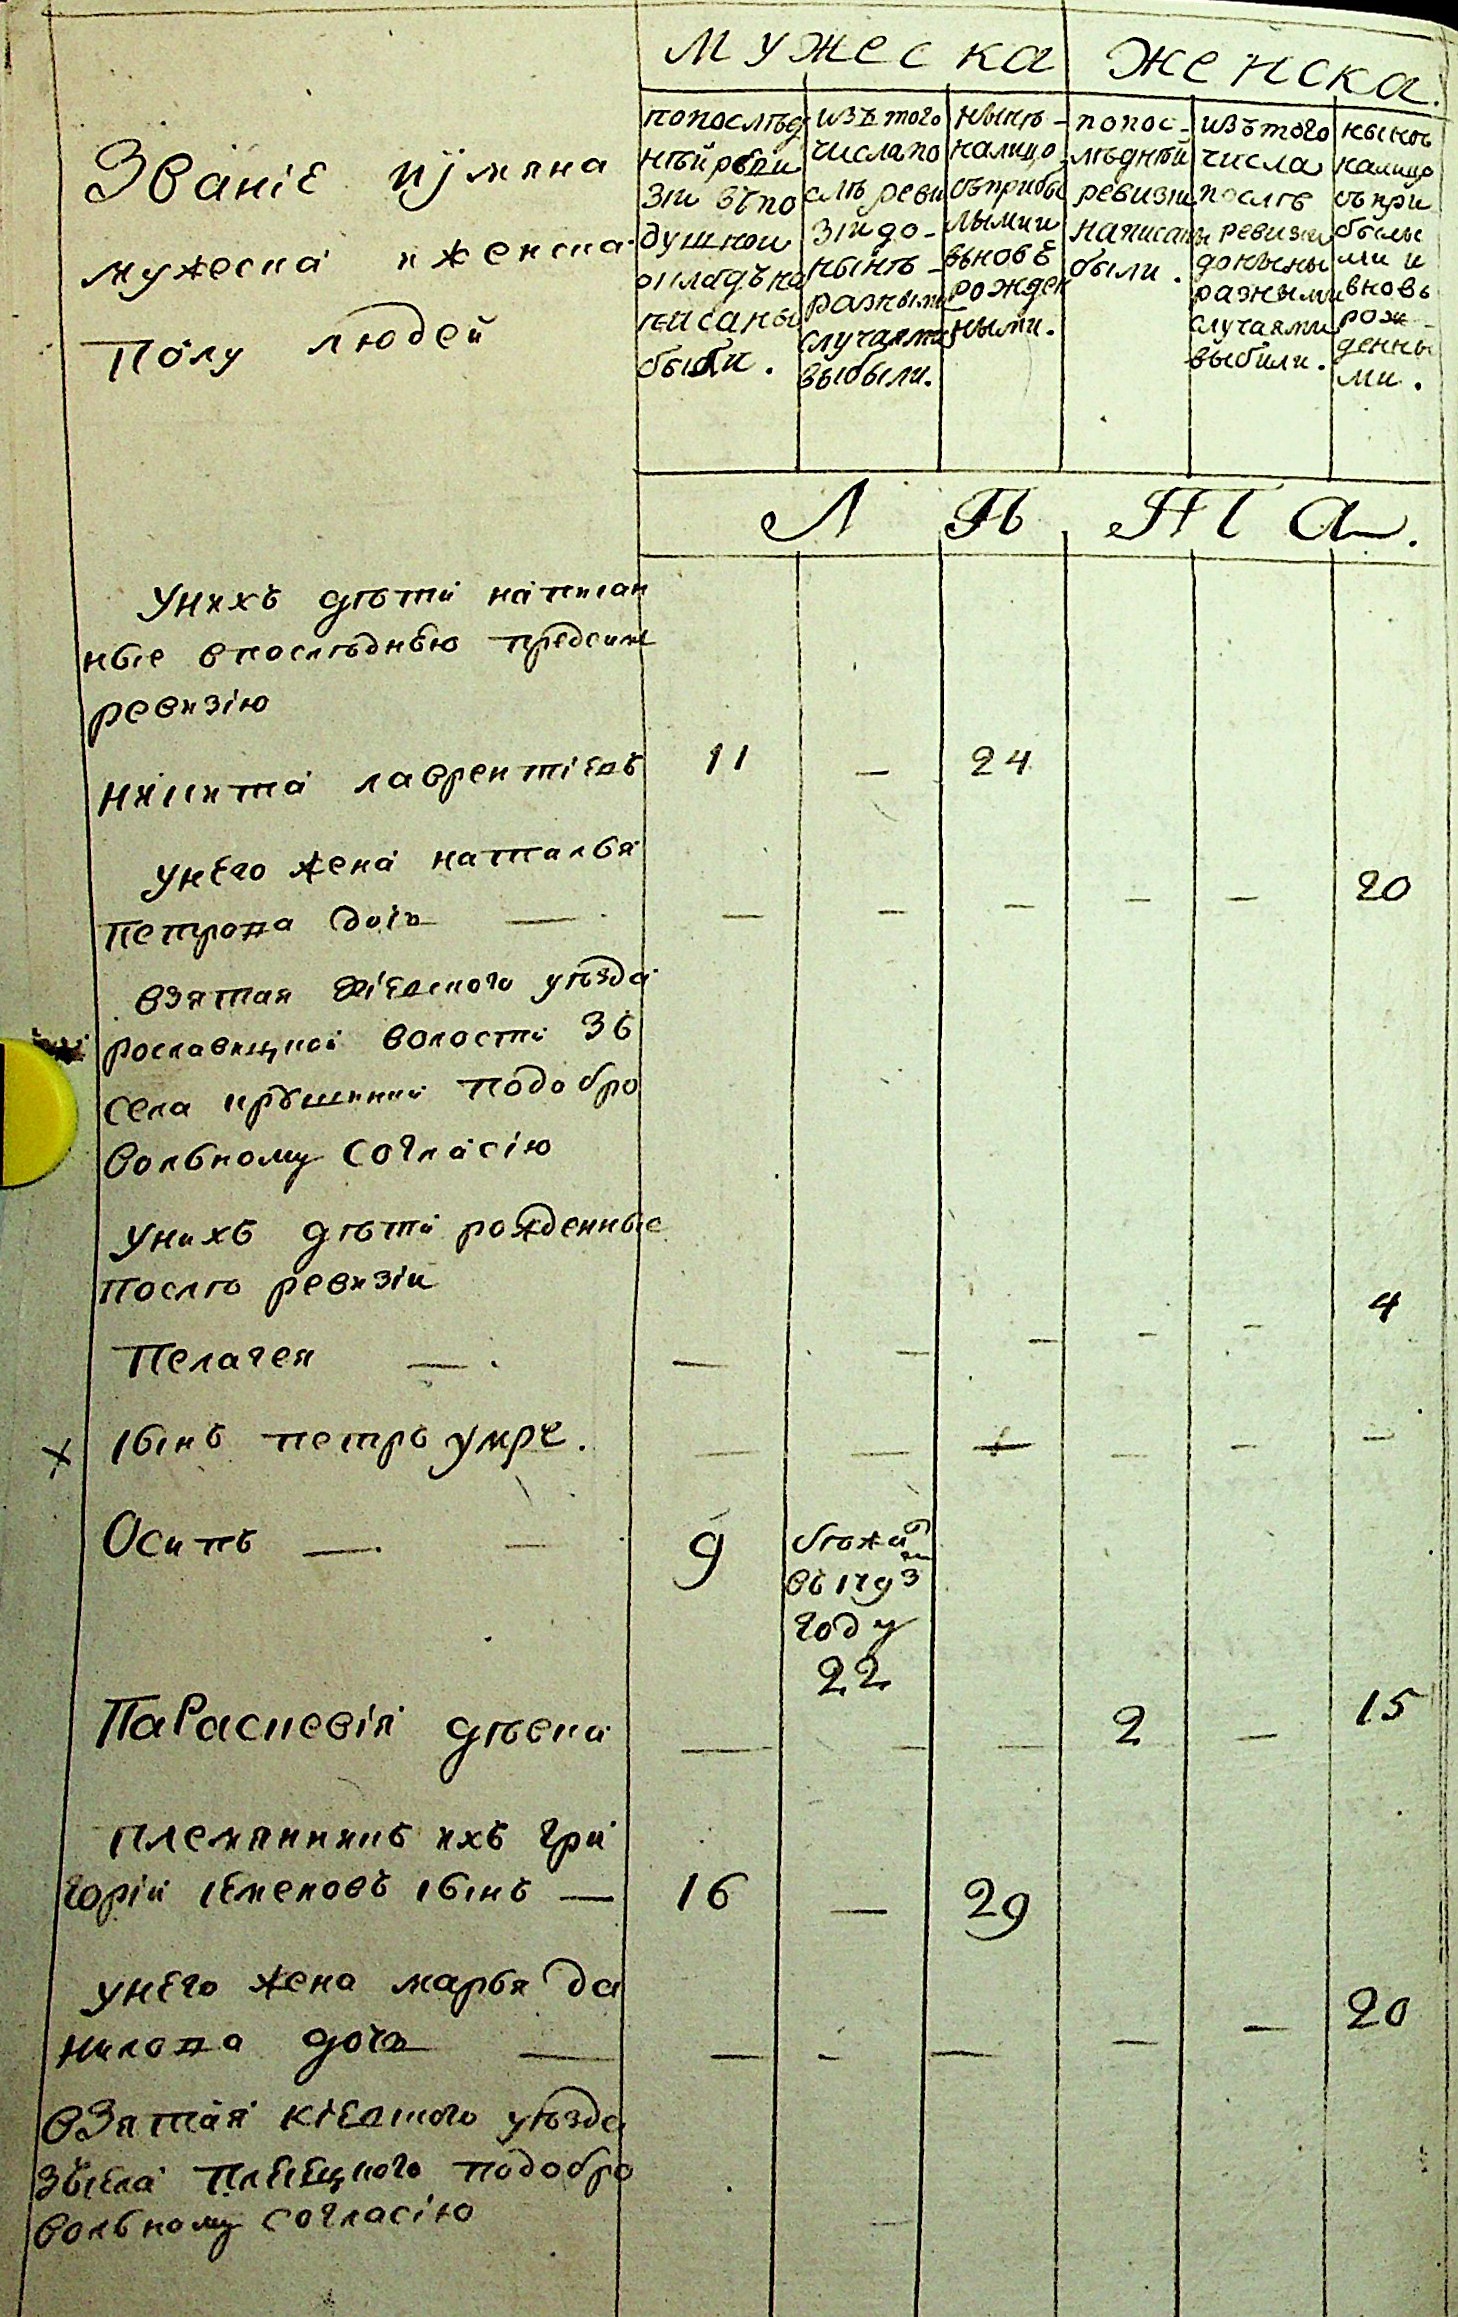 мужеска женска.
Званіе иймяна
мужеска иженска
полу людей
попослѣд
нѣй реви
зіи въпо
душной
окладъ на
писаны
были.
изътого
числа по
слѣ реви
зіи до-
нынѣ-
разными
случаями
выбыли.
нынѣ-
налицо
съприбы
лыми и
вьновь
рожден
ными.
попос-
лѣдней
ревизіи
написаны
были.
изътого
числа
послѣ
ревизіи
донынѣ
разными
случаями
выбыли.
нынѣ
налицо
съпри
былы
ми и
вновь
рож-
денны
ми.
Лѣта.
Унихъ дѣти написан
ные впослѣднью предсим
ревизію
никита лаврентіевъ 11 — 24
унего жена наталья
петрова дочь — — — — — — 20
взятая кіевского уѣзда
рославицкой волости зъ
села крушинки подобро
вольному согласію
унихъ дѣти рожденные
послѣ ревизіи
Пелагея — . — — — — — 4
× сынъ петръ умре. — — + — — —
Осипъ —. — 9
въ 1793
году
22
Параскевія дѣвка — — — 2 — 15
племянникъ ихъ гри
горій семеновъ сынъ — 16 — 29
унего жена марья да
нилова дочь — — — — — — 20
взятая кіевского уѣзда
зьсела плесецкого подобро
вольному согласію